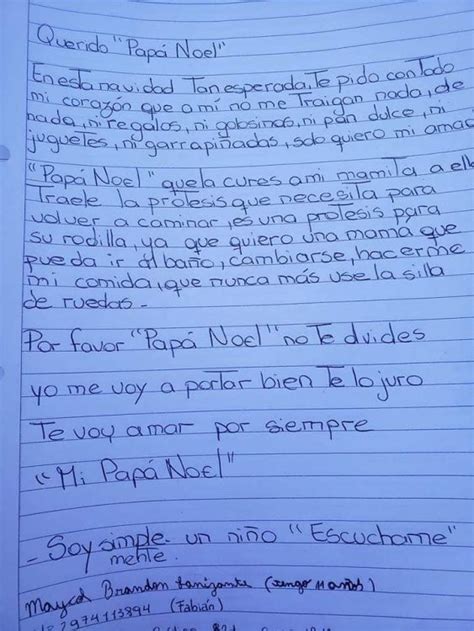 Querido "Papá Noel"
En esta navidad Tan esperada, Te pido con Todo
mi corazón que a mí no me Traigan nada, de
nada, ni regalos, ni golosinas, ni pan dulce, ni
juguetes, ni garrapiñadas, solo quiero mi amado
"Papá Noel" que la cures a mi mamita a ella
Traele la protesis que necesita para
volver a caminar, es una protesis para
su rodilla, ya que quiero una mamá que
pueda ir al baño, cambiarse, hacerme
mi comida, que nunca más use la silla
de ruedas -
Por favor "Papá Noel" no Te dvides
yo me voy a portar bien Te lo juro
Te voy amar por siempre
"Mi Papá Noel"
- Soy simple- un niño "Escuchame"
mente.
Maycol Brandon (tengo 11 años)
2974113894 (Fabián)